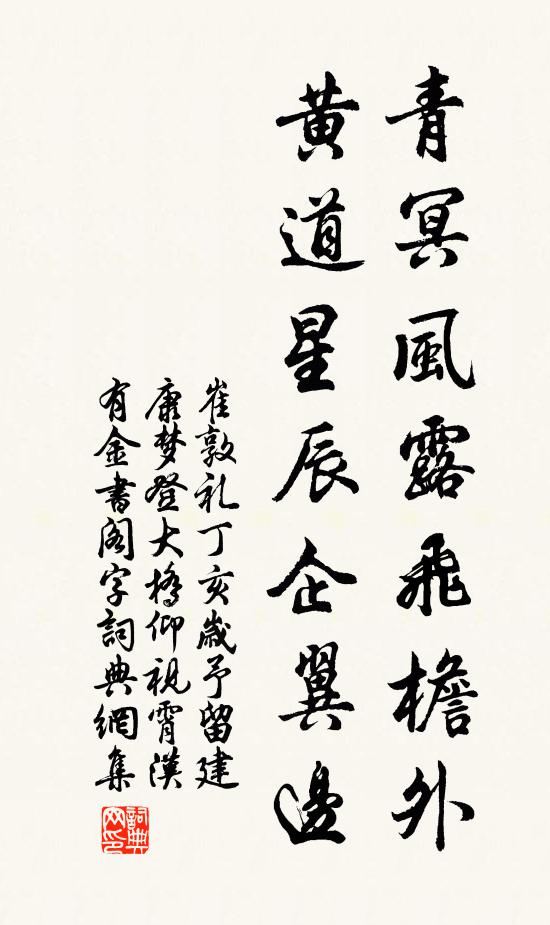 青冥風露飛檐外
黄道星辰企翼邊
崔敦礼丁亥歲予留建
康梦登大橋仰視霄漢
有金書閣字詞典網集
詞典
网印